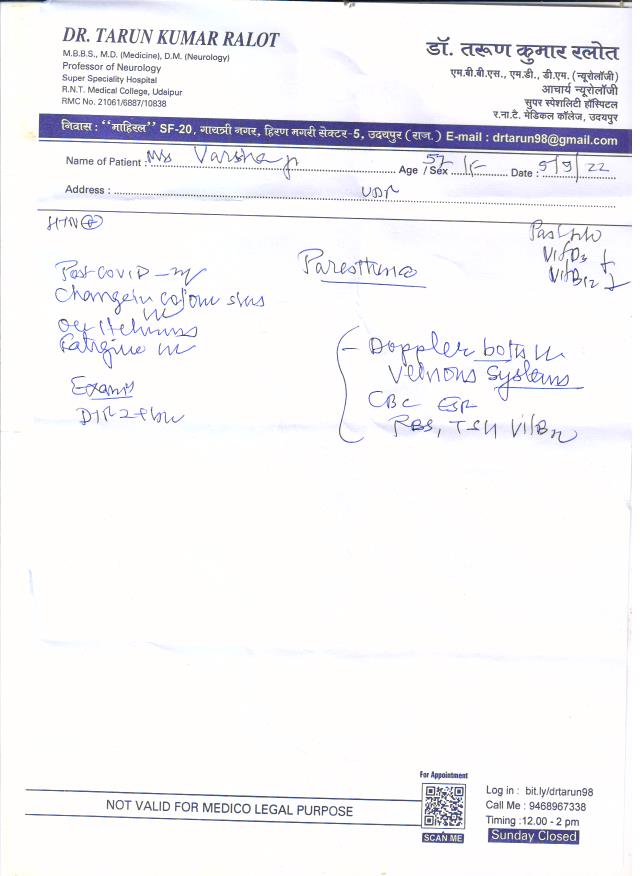 DR. TARUN KUMAR RALOT
M.B.B.S., M.D. (Medicine), D.M. (Neurology)
Professor of Neurology
Super Speciality Hospital
R.N.T. Medical College, Udaipur
RMC No. 21061/6887/10838
डॉ. तरूण कुमार रलोत
एम.बी.बी.एस., एम.डी., डी.एम. (न्यूरोलॉजी)
आचार्य न्यूरोलॉजी
सुपर स्पेशलिटी हॉस्पिटल
र.ना.टै. मेडिकल कॉलेज, उदयपुर
निवास : "माहिरल" SF-20, गायत्री नगर, हिरण मगरी सेक्टर-5, उदयपुर (राज.) E-mail : drtarun98@gmail.com
Name of Patient : Ms Varsha ji Age / Sex 57 /F Date : 5/9/22
Address : UDR
HTN ⊕
Past H/o
Vit D3 ↓
Vit B12 ↓
Paresthesia
Post COVID
Change in colour
Fatigue
Exam
DTR 2+
Doppler both
Venous Systems
CBC ESR
RBS, TSH Vit B12
NOT VALID FOR MEDICO LEGAL PURPOSE
For Appointment
SCAN ME
Log in : bit.ly/drtarun98
Call Me : 9468967338
Timing :12.00 - 2 pm
Sunday Closed